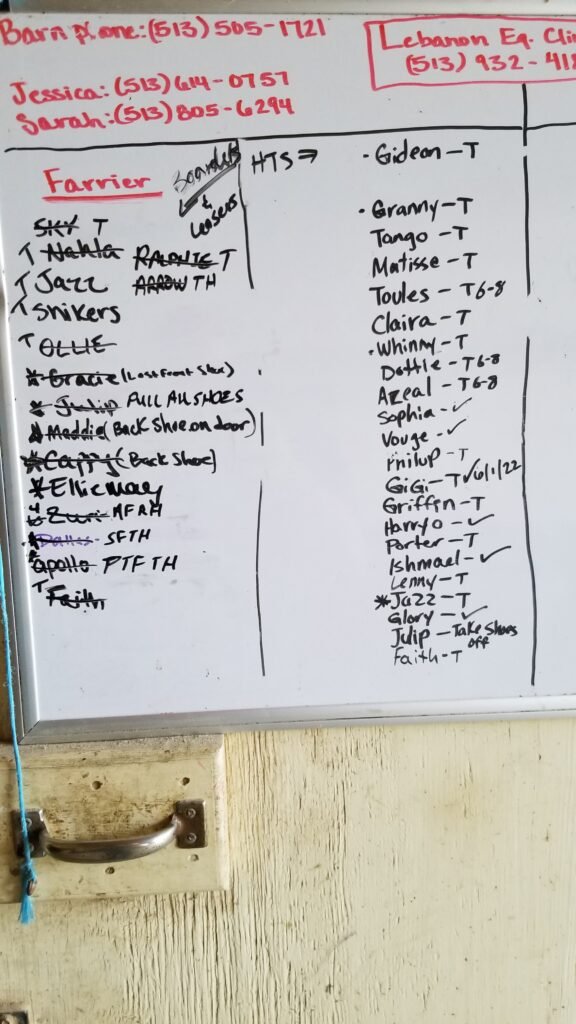 Barn phone: (513) 505-1721
Jessica: (513) 614-0757
Sarah: (513) 805-6294
Lebanon Eq. Clin
(513) 932-418
Farrier
Boarders
&
Leasers
SKY T
T Nahla RALONIE T
T Jazz ARROW TH
T Snikers
T OLLIE
* Gracie (Lost front Shoe)
* Julip FULL All SHOES
Maddie (Back Shoe on door)
* Cappy (Back Shoe)
* Elliemay
Zuri MFAH
Dallas - SFTH
* apollo FTF TH
T Faith
HTS ⇒
• Gideon - T
• Granny - T
Tango - T
Matisse - T
Toules - T 6-8
Claira - T
• Whinny - T
Dottle - T 6-8
Azeal - T 6-8
Sophia - ✓
Vouge - ✓
Philup - T
GiGi - T ✓ 6/1/22
Griffin - T
Harryo - ✓
Porter - T
Ishmael - ✓
Lenny - T
* Jazz - T
Glory - ✓
Julip - Take Shoes
off
Faith - T